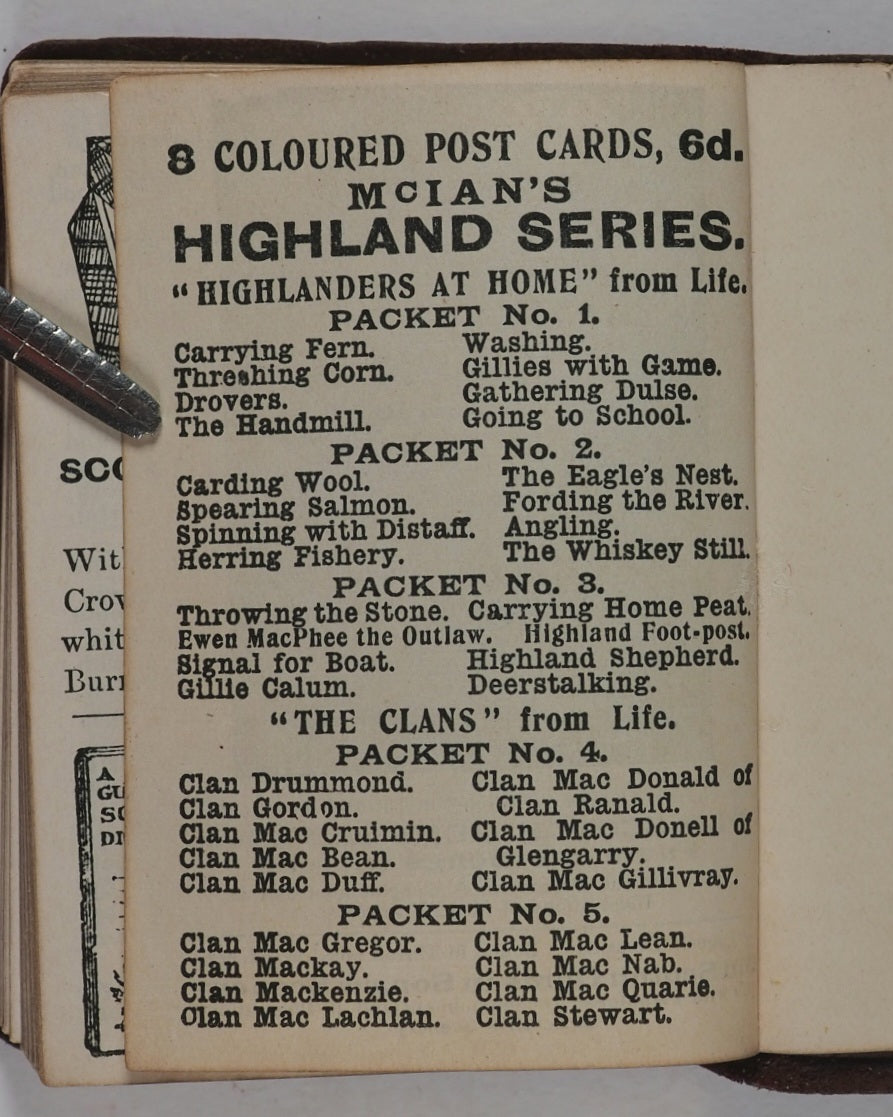 8 COLOURED POST CARDS, 6d.
McIAN'S
HIGHLAND SERIES.
"HIGHLANDERS AT HOME" from Life.
PACKET No. 1.
Carrying Fern. Washing.
Threshing Corn. Gillies with Game.
Drovers. Gathering Dulse.
The Handmill. Going to School.
PACKET No. 2.
Carding Wool. The Eagle's Nest.
Spearing Salmon. Fording the River.
Spinning with Distaff. Angling.
Herring Fishery. The Whiskey Still.
PACKET No. 3.
Throwing the Stone. Carrying Home Peat.
Ewen MacPhee the Outlaw. Highland Foot-post.
Signal for Boat. Highland Shepherd.
Gillie Calum. Deerstalking.
"THE CLANS" from Life.
PACKET No. 4.
Clan Drummond. Clan Mac Donald of
Clan Gordon. Clan Ranald.
Clan Mac Cruimin. Clan Mac Donell of
Clan Mac Bean. Glengarry.
Clan Mac Duff. Clan Mac Gillivray.
PACKET No. 5.
Clan Mac Gregor. Clan Mac Lean.
Clan Mackay. Clan Mac Nab.
Clan Mackenzie. Clan Mac Quarie.
Clan Mac Lachlan. Clan Stewart.
A